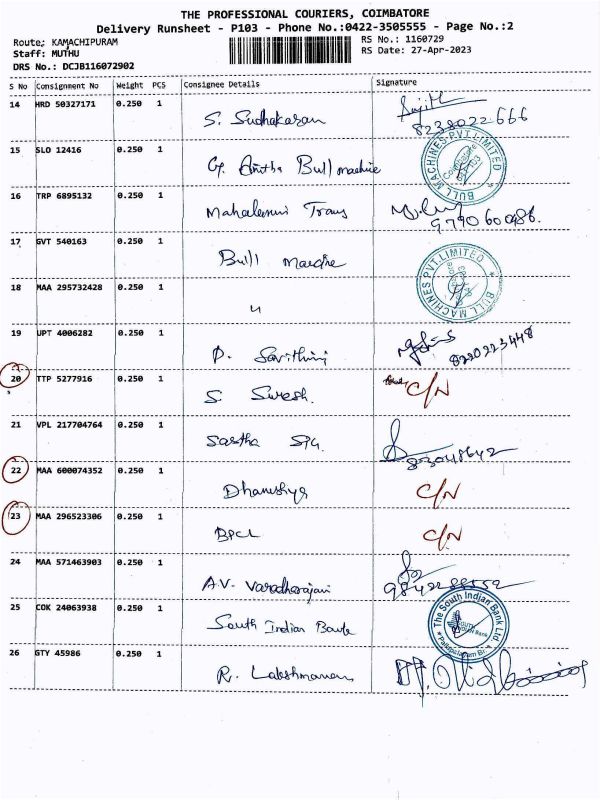 THE PROFESSIONAL COURIERS, COIMBATORE
Delivery Runsheet - P103 - Phone No.:0422-3505555 - Page No.:2
Route: KAMACHIPURAM
RS No.: 1160729
Staff: MUTHU
RS Date: 27-Apr-2023
DRS No.: DCJB116072902
S No Consignment No Weight PCS Consignee Details Signature
14 HRD 50327171 0.250 1 S. Sudhakaran Sujith
8238022666
15 SLO 12416 0.250 1 G. Anitha Bull machine
BULL MACHINES PVT. LIMITED
16 TRP 6895132 0.250 1 Trans
9790600486.
17 GVT 540163 0.250 1 Bull
BULL MACHINES PVT. LIMITED
18 MAA 295732428 0.250 1 "
19 UPT 4006282 0.250 1 P. Savithiri
8220223448
20 TTP 5277916 0.250 1 S. Suresh. C/N
21 VPL 217704764 0.250 1 Sastha
22 MAA 600074352 0.250 1 Dhanushya C/N
23 MAA 296523306 0.250 1 BPCL C/N
24 MAA 571463903 0.250 1 A.V. Varadharajan
25 COK 24063938 0.250 1 South Indian
The South Indian Bank Ltd.
26 GTY 45986 0.250 1 R. Lakshmanan